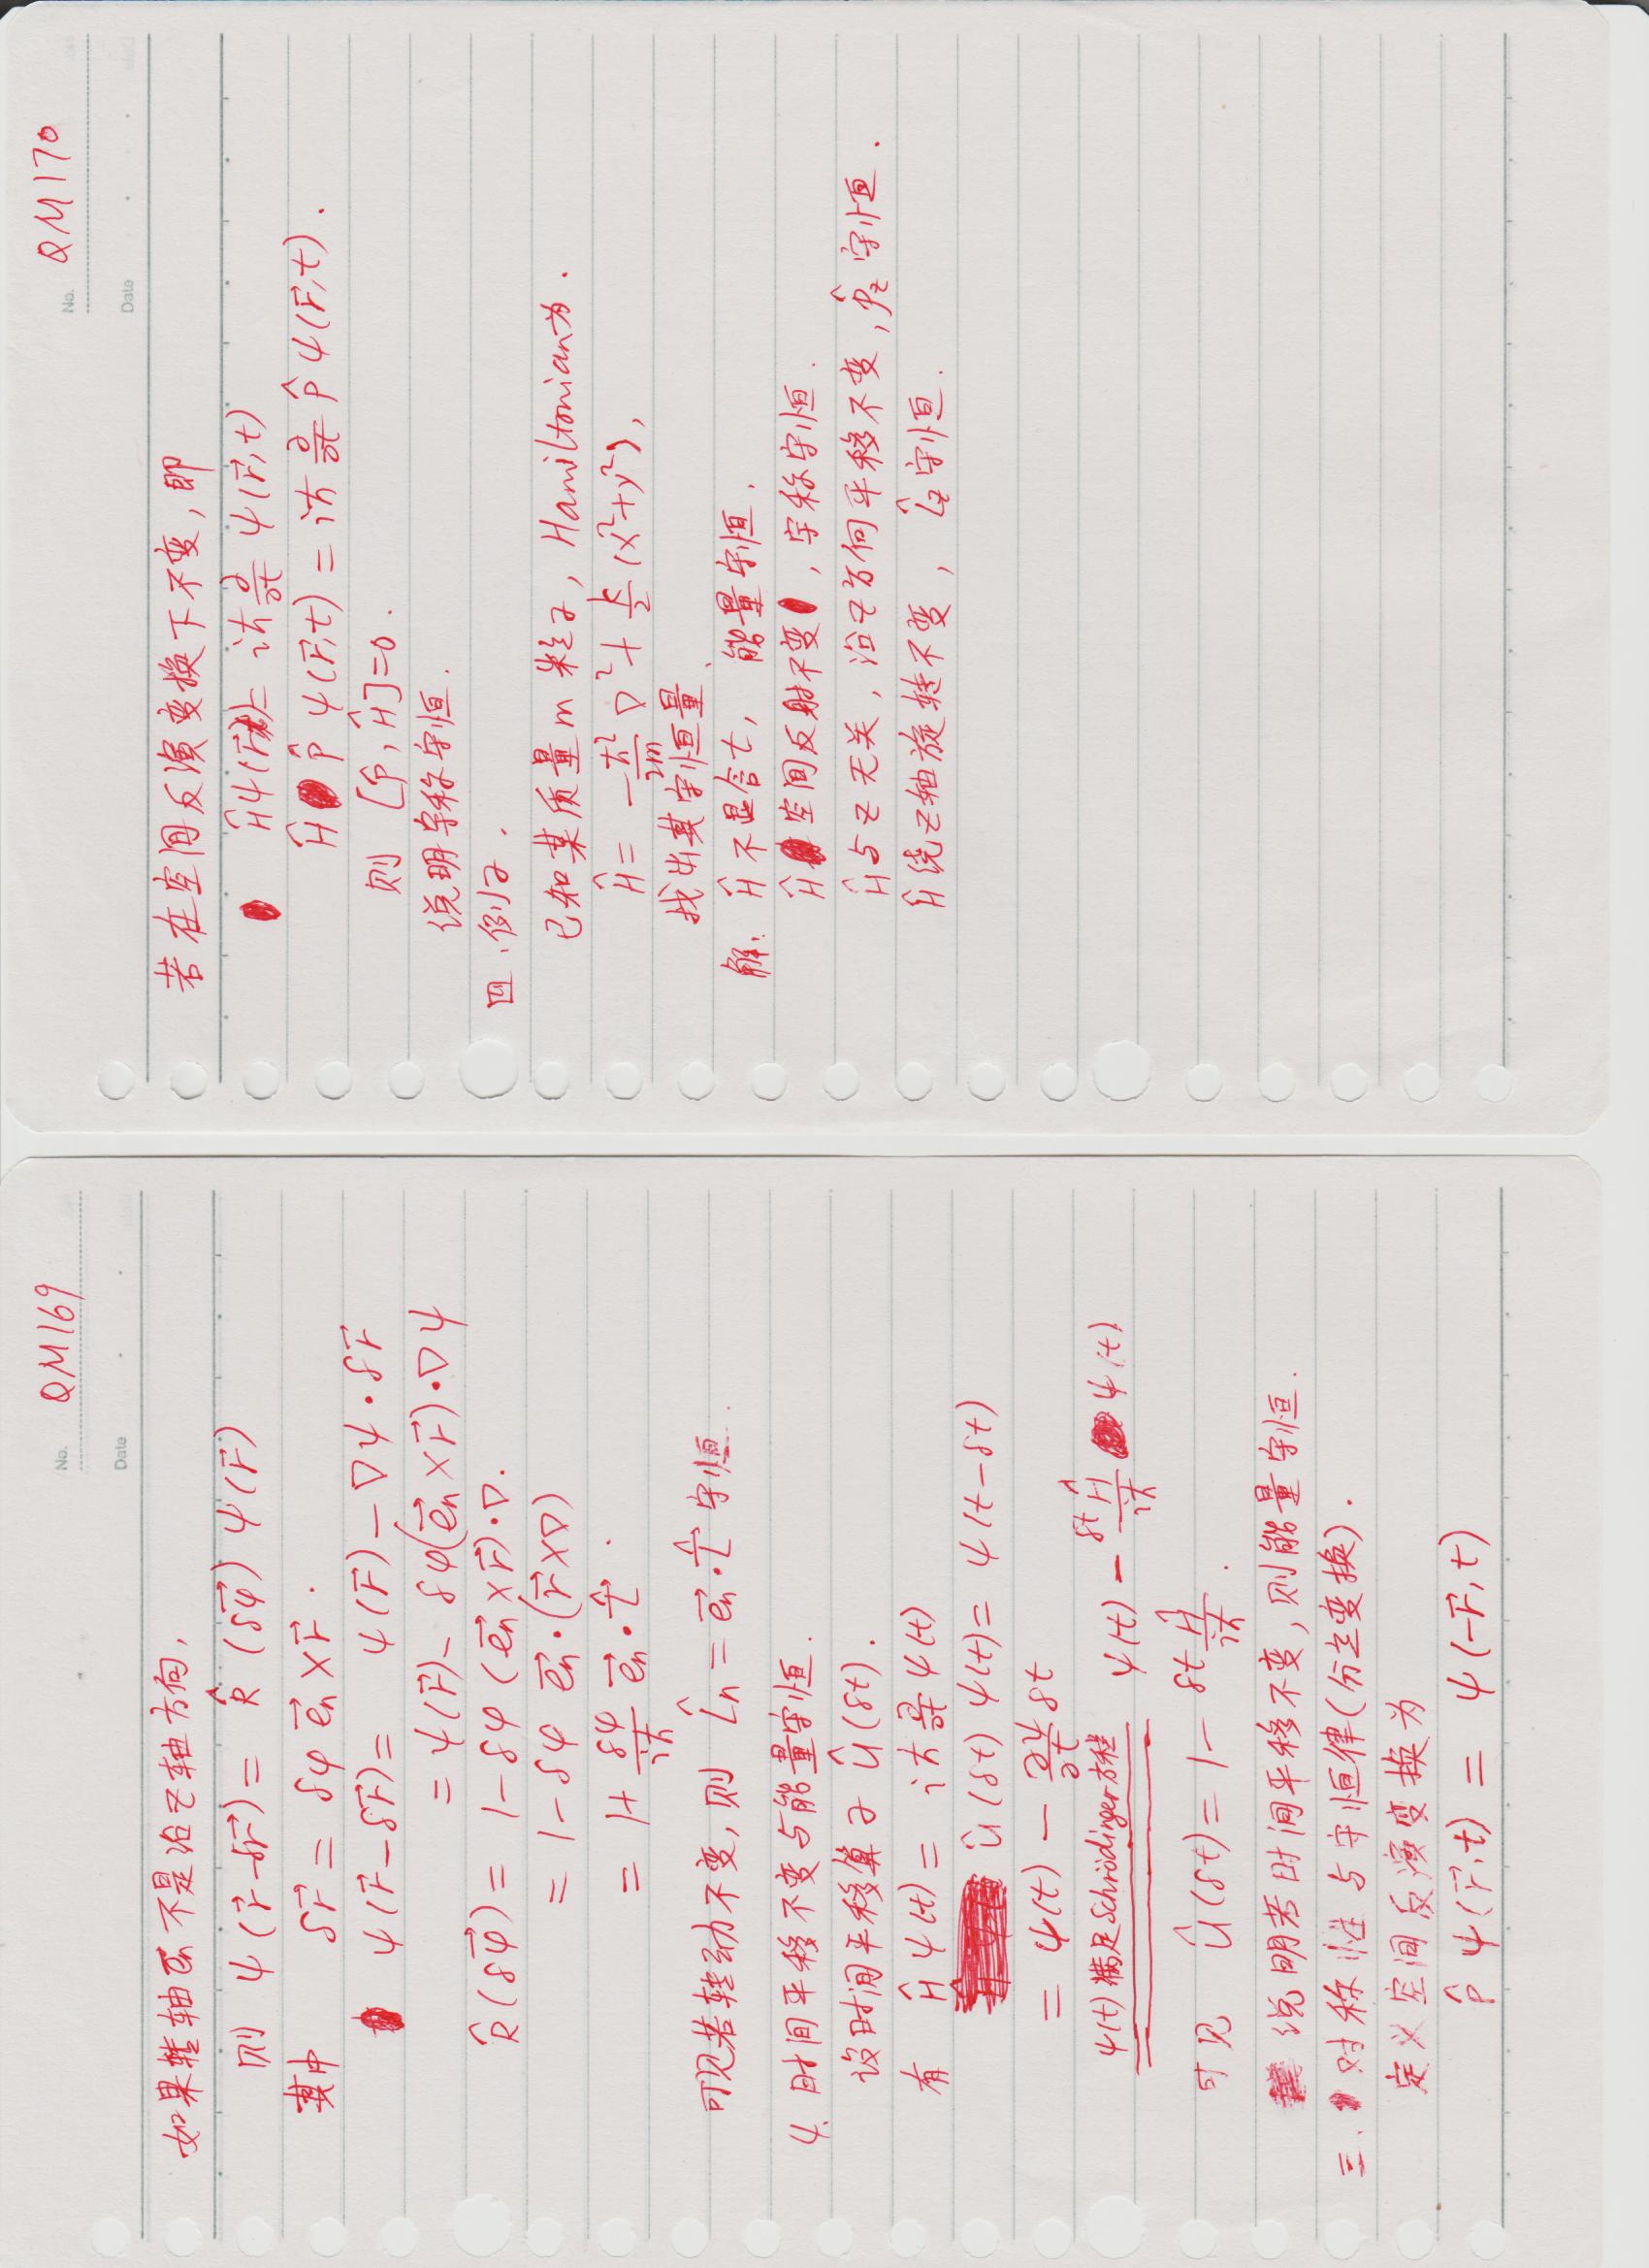 No. QM169
Date
如果转轴 e⃗n 不是沿z轴方向,
则 ψ(r⃗-δr⃗) = R̂(δφ⃗) ψ(r⃗)
其中 δr⃗ = δφ e⃗n × r⃗.
ψ(r⃗-δr⃗) = ψ(r⃗) - ∇ψ·δr⃗
= ψ(r⃗) - δφ(e⃗n × r⃗)·∇ψ
R̂(δφ⃗) = 1 - δφ (e⃗n × r⃗)·∇.
= 1 - δφ e⃗n·(r⃗ × ∇)
= 1 + δφ/iħ e⃗n·L⃗̂.
可见若转动不变, 则 L̂n = e⃗n·L⃗̂ 守恒.
4. 时间平移不变与能量守恒.
设时间平移算子 Û(δt).
有 Ĥψ(t) = iħ ∂/∂t ψ(t)
Û(δt) ψ(t) = ψ(t-δt)
= ψ(t) - ∂ψ/∂t δt
ψ(t)满足Schrödinger方程 ψ(t) - δtĤ/iħ ψ(t)
可见 Û(δt) = 1 - δtĤ/iħ.
说明若时间平移不变, 则能量守恒.
三. 对称性与守恒律(分立变换).
定义空间反演变换为
P̂ψ(r⃗,t) = ψ(-r⃗,t)
No. QM170
Date
若在空间反演变换下不变, 即
Ĥψ(r⃗,t) = iħ ∂/∂t ψ(r⃗,t)
ĤP̂ψ(r⃗,t) = iħ ∂/∂t P̂ψ(r⃗,t).
则 [P̂,Ĥ]=0.
说明宇称守恒.
四. 例子.
已知某质量m粒子, Hamiltonian为.
Ĥ = -ħ²/2m ∇² + k/2 (x²+y²),
找出其守恒量.
解: Ĥ不显含t, 能量守恒.
Ĥ空间反射不变, 宇称守恒.
Ĥ与z无关, 沿z方向平移不变, p̂z守恒.
Ĥ绕z轴旋转不变, L̂z守恒.